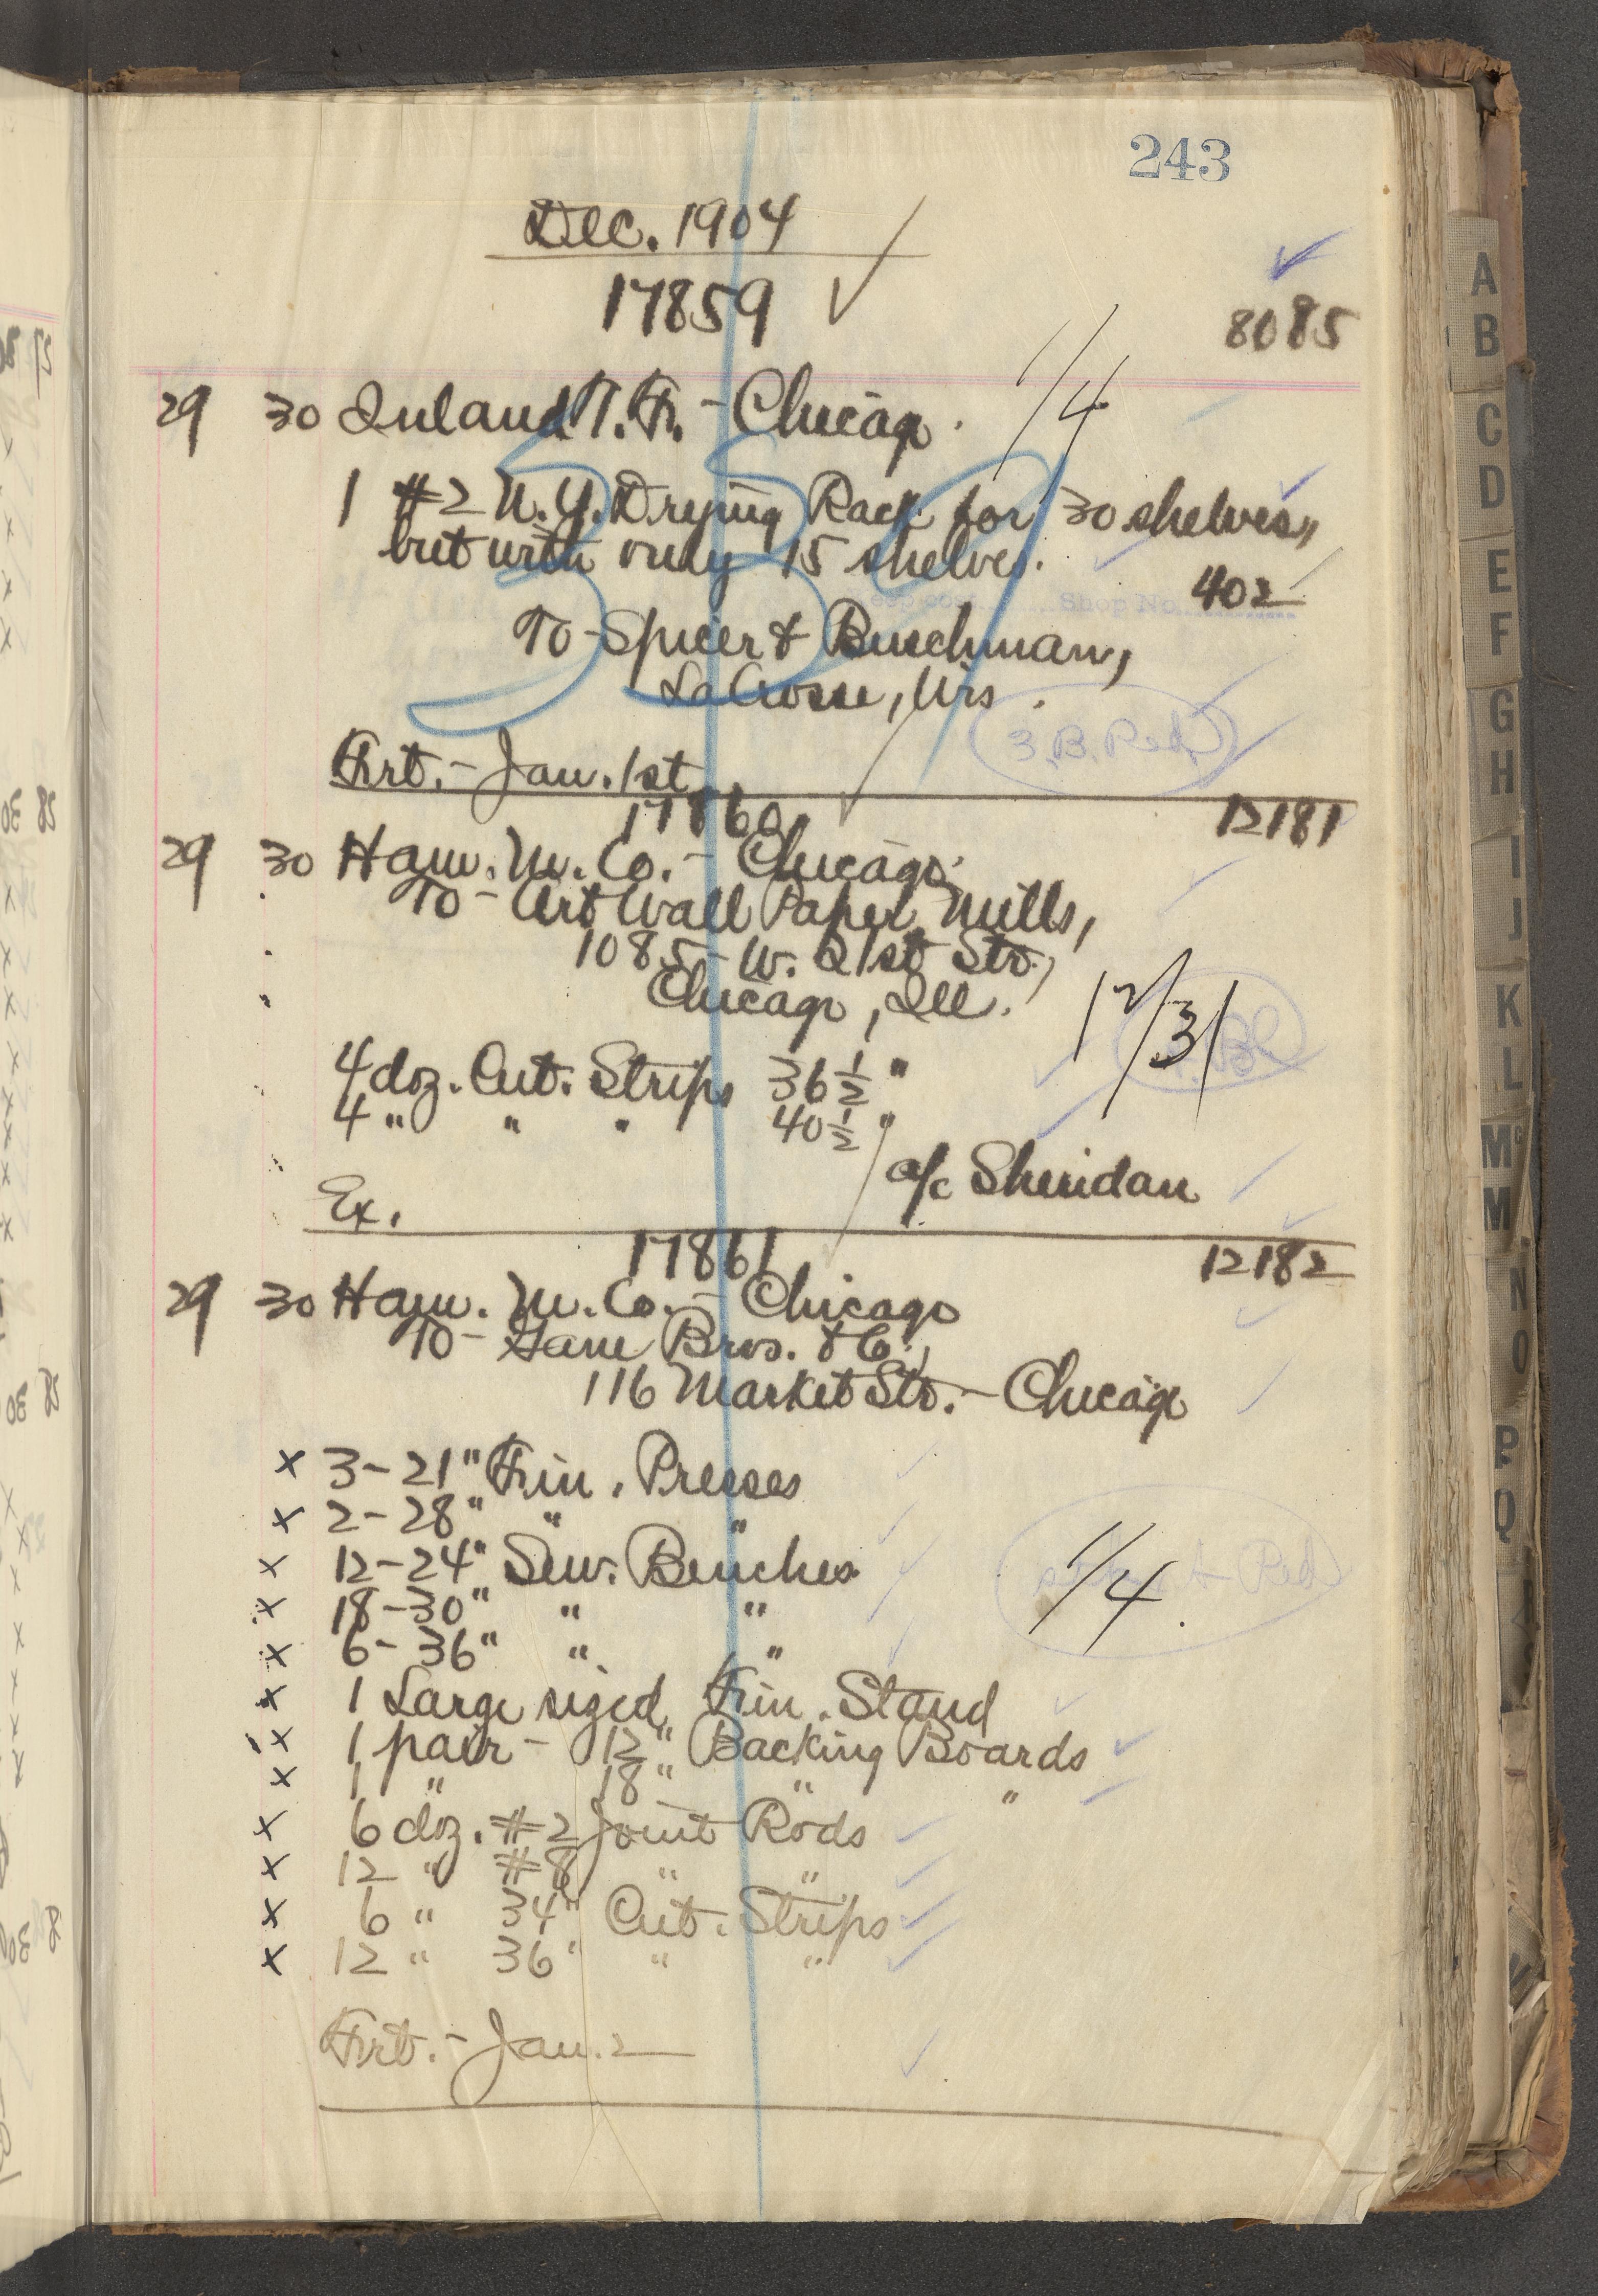 243
Dec. 1904
17859 ✓
8085
29 30 Inland T. F. - Chicago.
1/4
1 #2 N.Y. Drying Rack for 30 shelves,
but with only 15 shelves.
402
Shop No.
To - Spicer & Buschman,
LaCrosse, Wis.
3 B. Red
Frt. - Jan. 1st
17860
12181
29 30 Ham. M. Co. - Chicago
To - Art Wall Paper Mills,
1085 - W. 21st Str.,
Chicago, Ill.
12/31
4 doz. Cut. Strips 36 1/2 "
4 " " " 40 1/2 "
a/c Sheridan
Ex.
17861
12182
29 30 Ham. M. Co. - Chicago
To - Gane Bros. & Co.,
116 Market Str. - Chicago
x 3 - 21" Fin. Presses
x 2 - 28" " "
x 12 - 24" Sew. Benches
x 18 - 30" " "
1/4
Red
x 6 - 36" " "
x 1 Large sized Fin. Stand
x 1 pair - 12" Backing Boards
x 1 " 18" " "
x 6 doz. #2 Joint Rods
x 12 " #8 " "
x 6 " 34" Cut. Strips
x 12 " 36" " "
Frt. - Jan. 2
A
B
C
D
E
F
G
H
I
J
K
L
Mc
M
N
O
P
Q